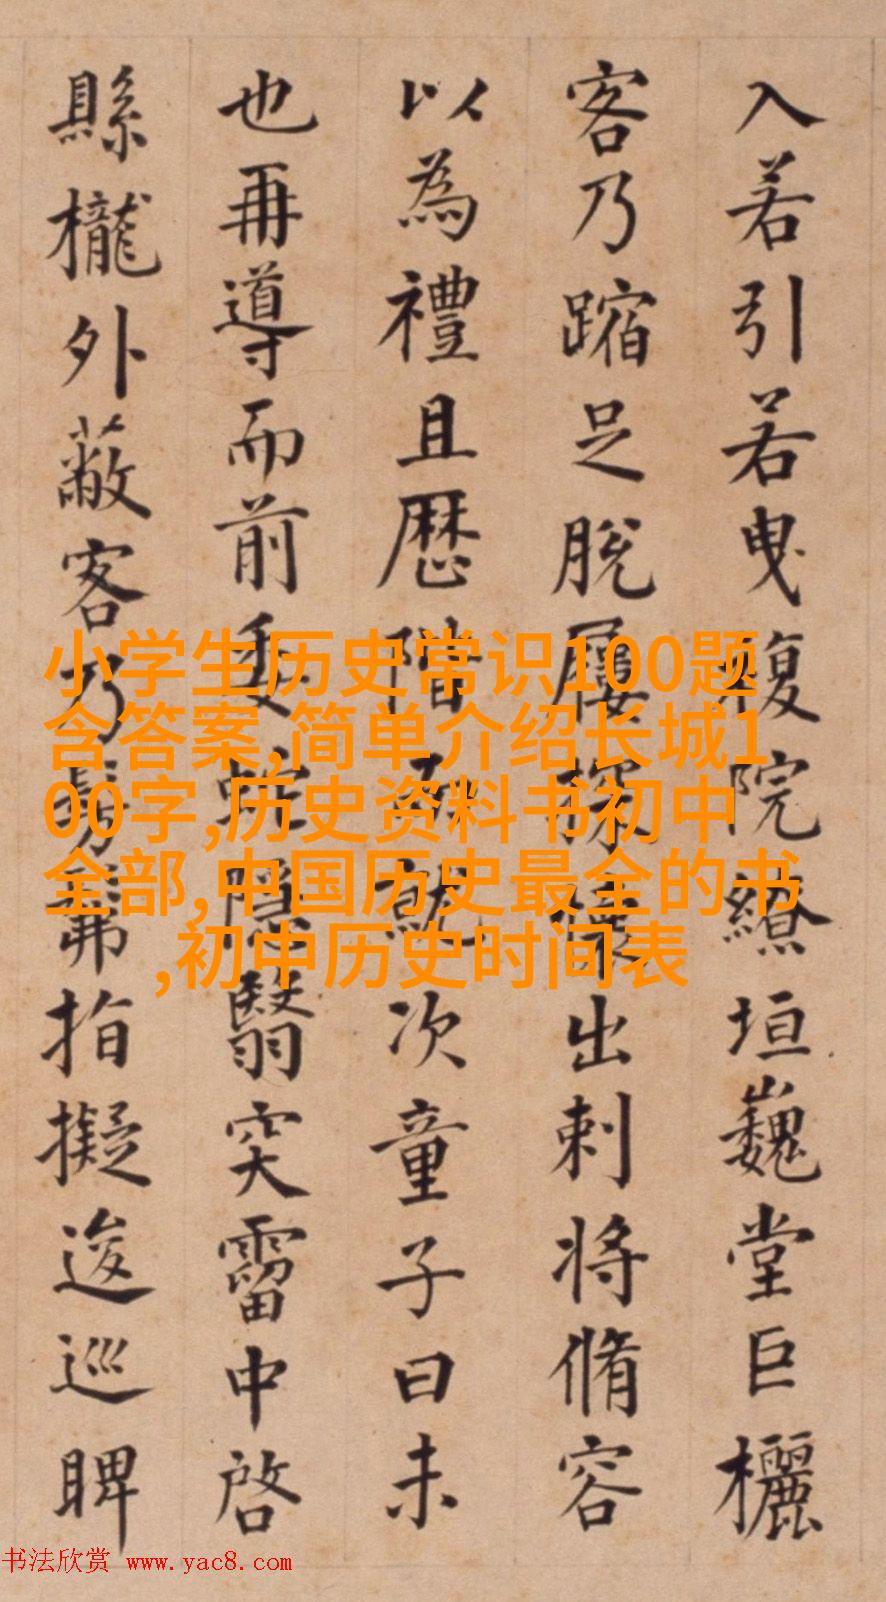 入若引若曳複院繚垣巍堂巨欐
客乃蹜足脫屨探懷出刺將脩容
以為禮且歷階而就次童子曰未
也再導而前委蛇隱翳突霤中啓
縣櫳外蔽客乃髣髴指擬逡巡睥
小学生历史常识100题
含答案,简单介绍长城1
00字,历史资料书初中
全部,中国历史最全的书
,初中历史时间表
书法欣赏 www.yac8.com